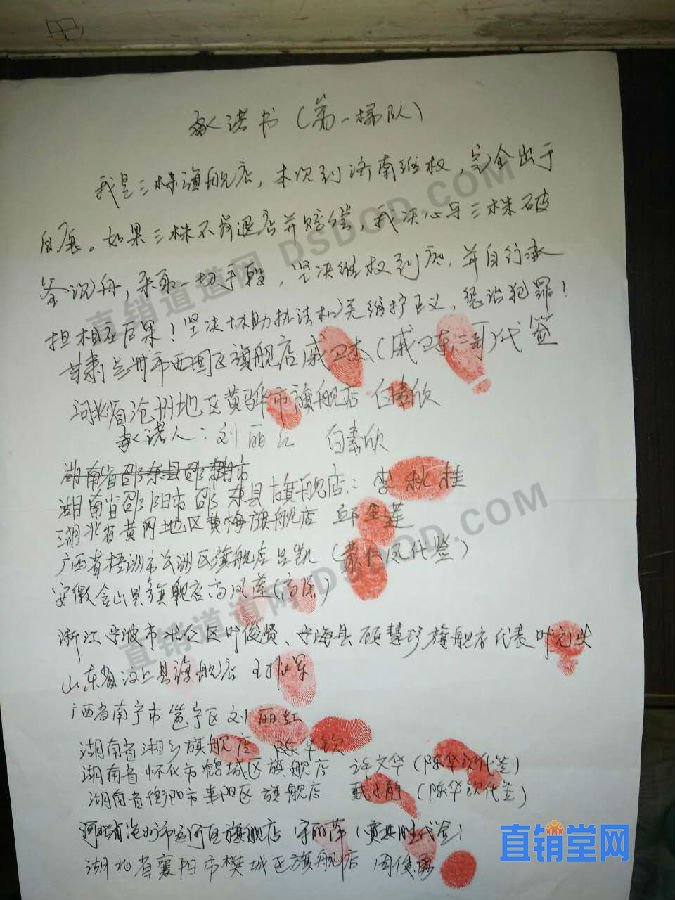 承诺书（第一梯队）
我是三株旗舰店，本次到济南维权，完全出于
自愿。如果三株不给退店并赔偿，我决心与三株破
釜沉舟，采取一切手段，坚决维权到底，并自行承
担相应后果！坚决协助执法机关维护正义，惩治犯罪！
甘肃兰州市西固区旗舰店戚卫杰（戚卫 哥）代签
河北省沧州地区黄骅市旗舰店 白素欣
承诺人：刘丽红 白素欣
湖南省邵
湖南省邵阳市邵东县旗舰店：李秋桂
湖北省黄冈地区黄梅旗舰店 邱金莲
广西省梧州市 区旗舰店吕凯（ 凤代签）
安徽含山县旗舰店高凤莲
浙江宁波市北仑区叶俊贤、宁海县 旗舰店代表叶
山东省汶上县旗舰店
广西省南宁市邕宁区刘丽红
湖南省湘乡旗舰店 陈华
湖南省怀化市鹤城区旗舰店 许文华（陈华 代签）
湖南省衡阳市耒阳区旗舰店 戴 （陈华 代签）
河北省沧州市运河区旗舰店 宋丽萍（ 代签）
湖北省襄阳市樊城区旗舰店 周俊
直销道道网 DSDOD.COM
直销道道网 DSDOD.COM
直销道道网 DSDOD.COM
直销堂网